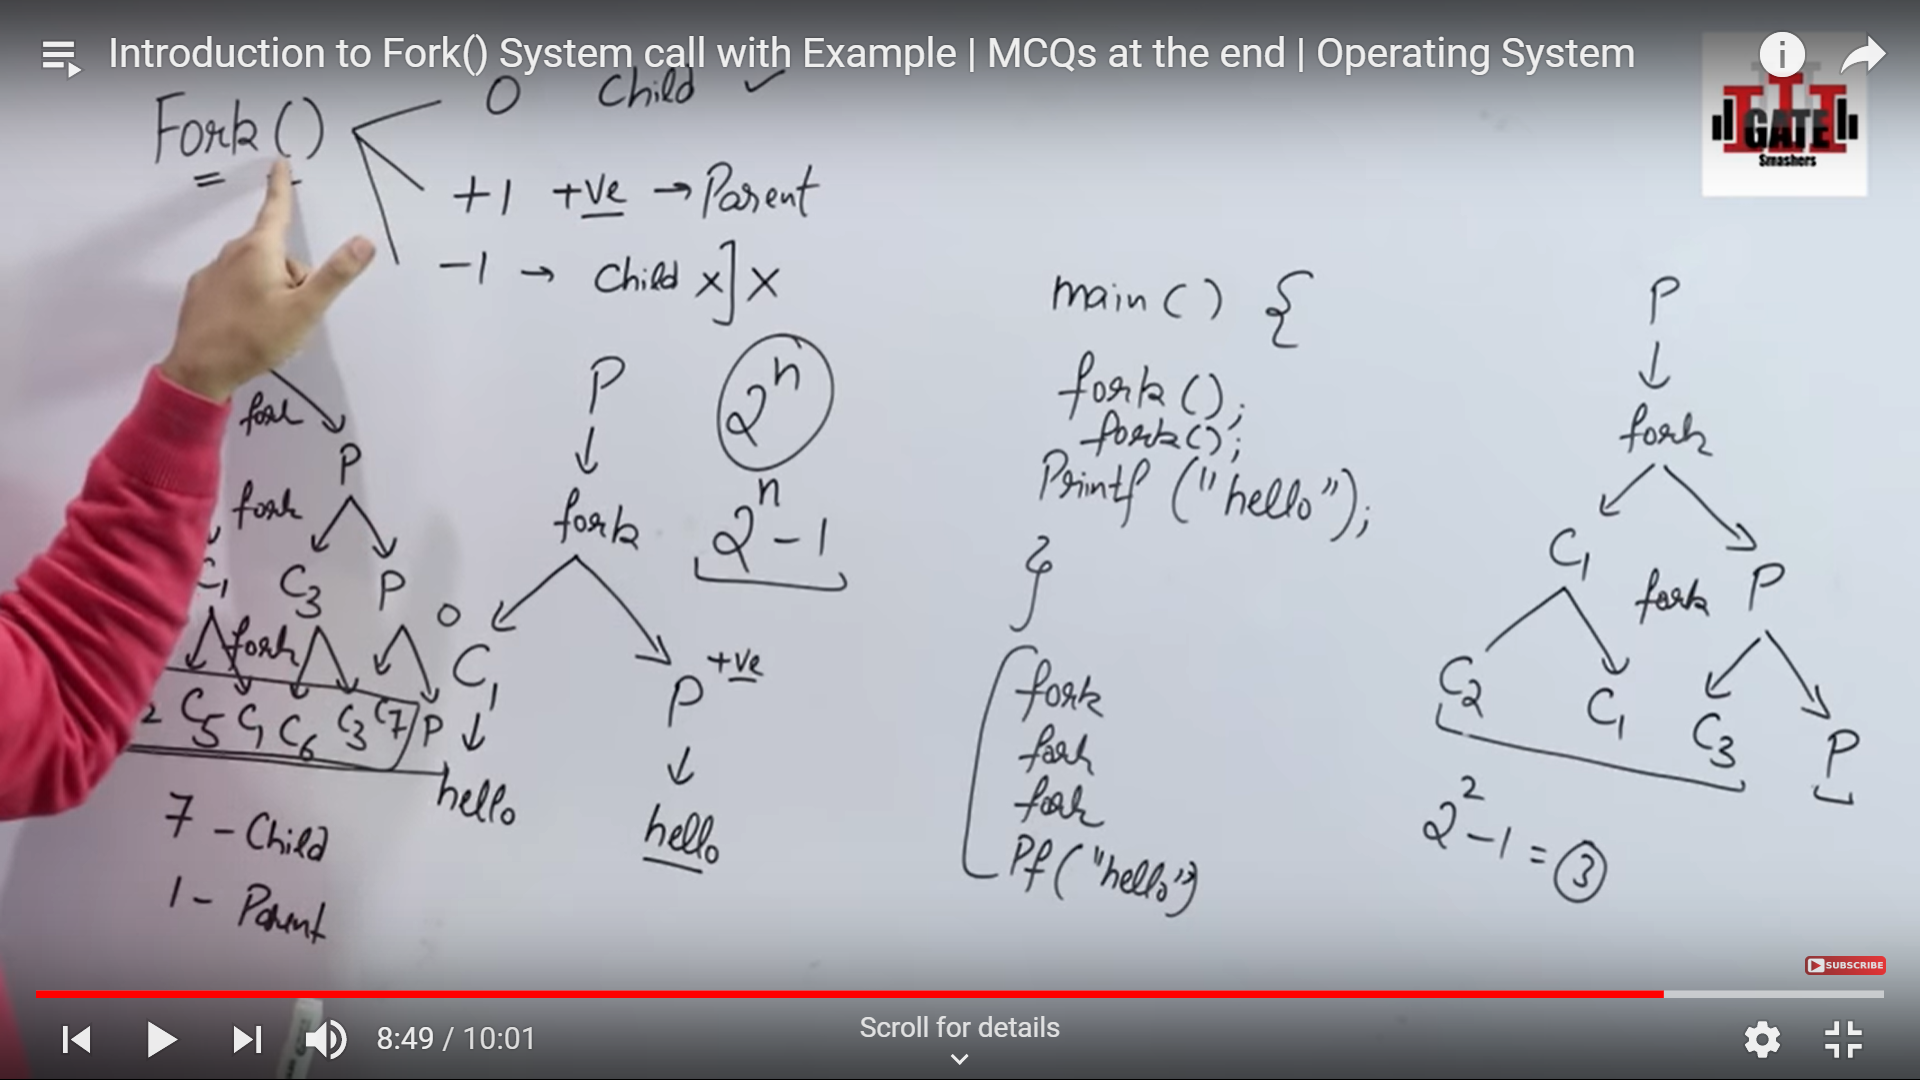 Introduction to Fork() System call with Example | MCQs at the end | Operating System
GATE
Smashers
Fork()
0 Child ✓
+1 +ve → Parent
-1 → Child x] x
fork
P
fork
C1 C3 P
fork
2 C5 C1 C6 C3 C7 P
7 - Child
1 - Parent
P
↓
fork
0
C1 P +ve
↓ ↓
hello hello
2^n
2^n - 1
main() {
fork();
fork();
Printf("hello");
}
fork
fork
fork
Pf("hello")
P
↓
fork
C1 fork P
C2 C1 C3 P
2^2 - 1 = 3
SUBSCRIBE
8:49 / 10:01
Scroll for details